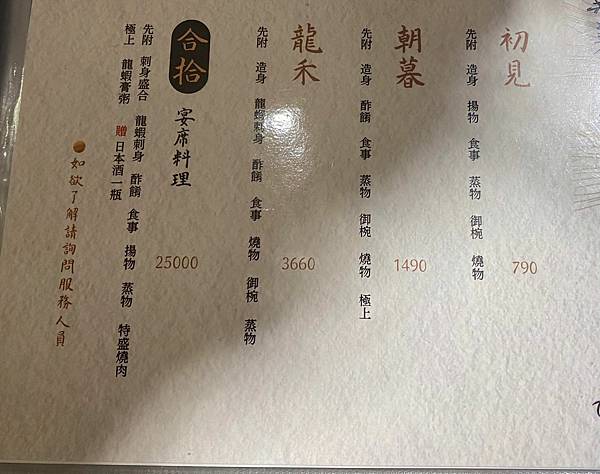 初見
先附 造身 揚物 食事 蒸物 御椀 燒物
790
朝暮
先附 造身 酢餚 食事 蒸物 御椀 燒物 極上
1490
龍禾
先附 造身 龍蝦刺身 酢餚 食事 燒物 御椀 蒸物
3660
合拾
宴席料理
25000
先附 刺身盛合 龍蝦刺身 酢餚 食事 揚物 蒸物 特盛燒肉
極上 龍蝦膏粥 贈 日本酒一瓶
如欲了解請詢問服務人員